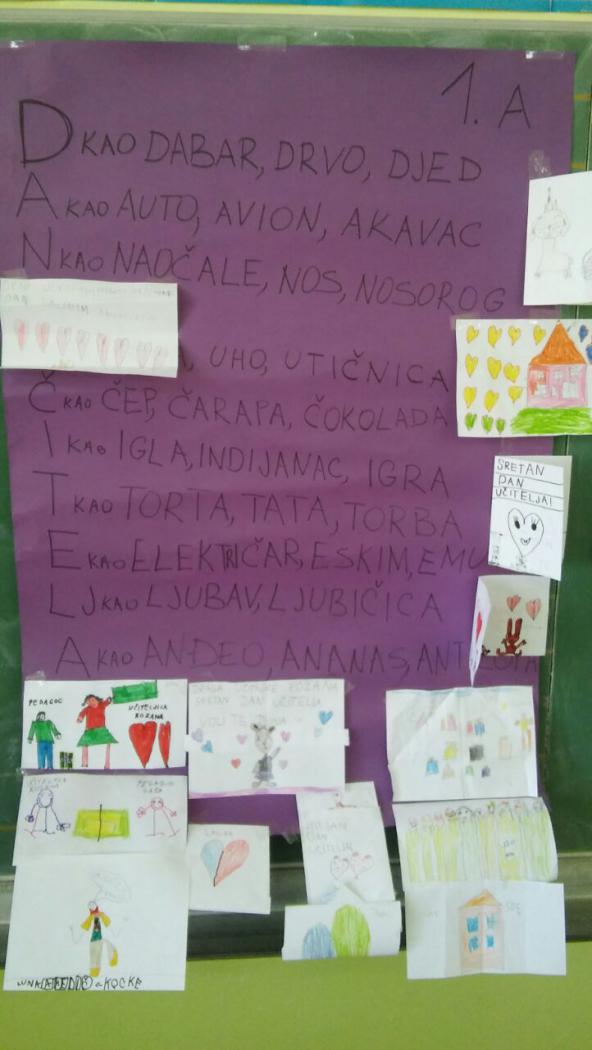 1. A
D KAO DABAR, DRVO, DJED
A KAO AUTO, AVION, AKAVAC
N KAO NAOČALE, NOS, NOSOROG
UHO, UTIČNICA
Č KAO ČEP, ČARAPA, ČOKOLADA
I KAO IGLA, INDIJANAC, IGRA
T KAO TORTA, TATA, TORBA
E KAO ELEKTRIČAR, ESKIM, EMU
LJ KAO LJUBAV, LJUBIČICA
A KAO ANĐEO, ANANAS, ANTILOPA
SRETAN
DAN
UČITELJA!
PEDAGOG
UČITELJICA
ROZANA
SRETAN DAN UČITELJA
VOLI TE
SRETAN
DAN
KOCKE